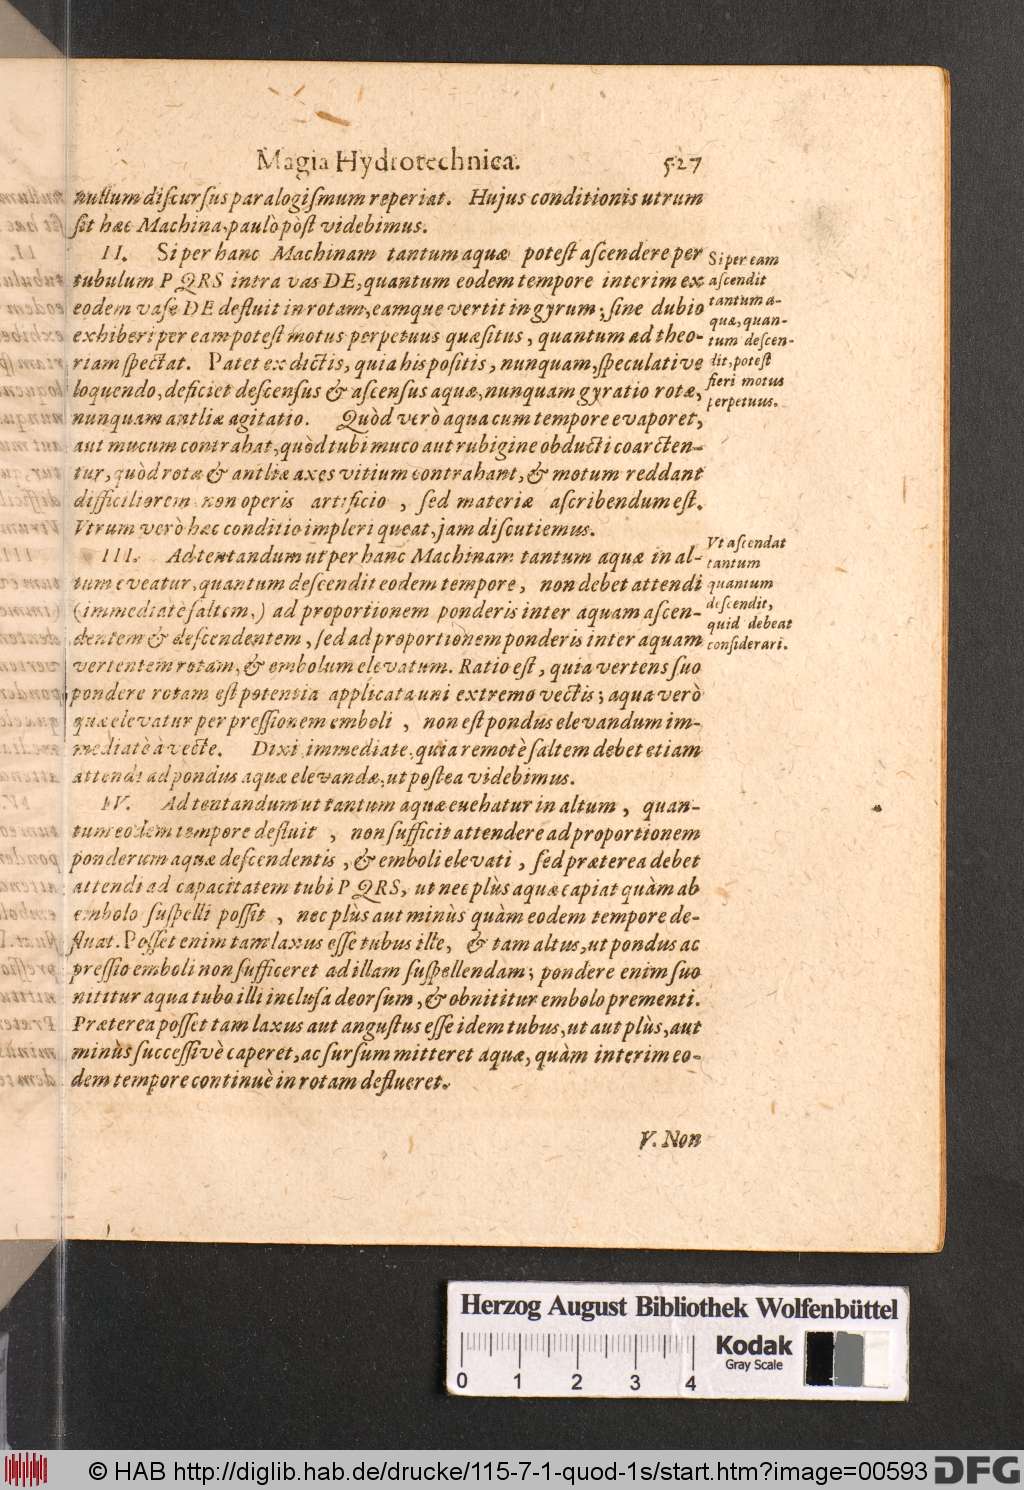 Magia Hydrotechnica. 527
nullum discursus paralogismum reperiat. Hujus conditionis utrum
sit hæc Machina, paulò pòst videbimus.
II. Si per hanc Machinam tantum aquæ potest ascendere per
tubulum PQRS intra vas DE, quantum eodem tempore interim ex
eodem vase DE defluit in rotam, eamque vertit in gyrum; sine dubio
exhiberi per eam potest motus perpetuus quæsitus, quantum ad theo-
riam spectat. Patet ex dictis, quia his positis, nunquam, speculative
loquendo, deficiet descensus & ascensus aquæ, nunquam gyratio rotæ,
nunquam antliæ agitatio. Quòd verò aqua cum tempore evaporet,
aut mucum contrahat, quòd tubi muco aut rubigine obducti coarcten-
tur, quòd rotæ & antliæ axes vitium contrahant, & motum reddant
difficiliorem non operis artificio, sed materiæ ascribendum est.
Vtrum verò hæc conditio impleri queat, jam discutiemus.
III. Ad tentandum ut per hanc Machinam tantum aquæ in al-
tum eveatur, quantum descendit eodem tempore, non debet attendi
(immediatè saltem,) ad proportionem ponderis inter aquam ascen-
dentem & descendentem, sed ad proportionem ponderis inter aquam
vertentem rotam, & embolum elevatum. Ratio est, quia vertens suo
pondere rotam est potentia applicata uni extremo vectis; aqua verò
quæ elevatur per pressionem emboli, non est pondus elevandum im-
mediatè à vecte. Dixi immediate, quia remotè saltem debet etiam
attendi ad pondus aquæ elevandæ, ut postea videbimus.
IV. Ad tentandum ut tantum aquæ evehatur in altum, quan-
tum eodem tempore defluit, non sufficit attendere ad proportionem
ponderum aquæ descendentis, & emboli elevati, sed præterea debet
attendi ad capacitatem tubi PQRS, ut nec plùs aquæ capiat quàm ab
embolo suspelli possit, nec plùs aut minùs quàm eodem tempore de-
fluat. Posset enim tam laxus esse tubus ille, & tam altus, ut pondus ac
pressio emboli non sufficeret ad illam suspellendam; pondere enim suo
nititur aqua tubo illi inclusa deorsum, & obnititur embolo prementi.
Præterea posset tam laxus aut angustus esse idem tubus, ut aut plùs, aut
minùs successivè caperet, ac sursum mitteret aquæ, quàm interim eo-
dem tempore continuè in rotam deflueret.
V. Non
Si per eam
ascendit
tantum a-
quæ, quan-
tum descen-
dit, potest
fieri motus
perpetuus.
Vt ascendat
tantum
quantum
descendit,
quid debeat
considerari.
Herzog August Bibliothek Wolfenbüttel
Kodak
Gray Scale
0 1 2 3 4
© HAB http://diglib.hab.de/drucke/115-7-1-quod-1s/start.htm?image=00593 DFG